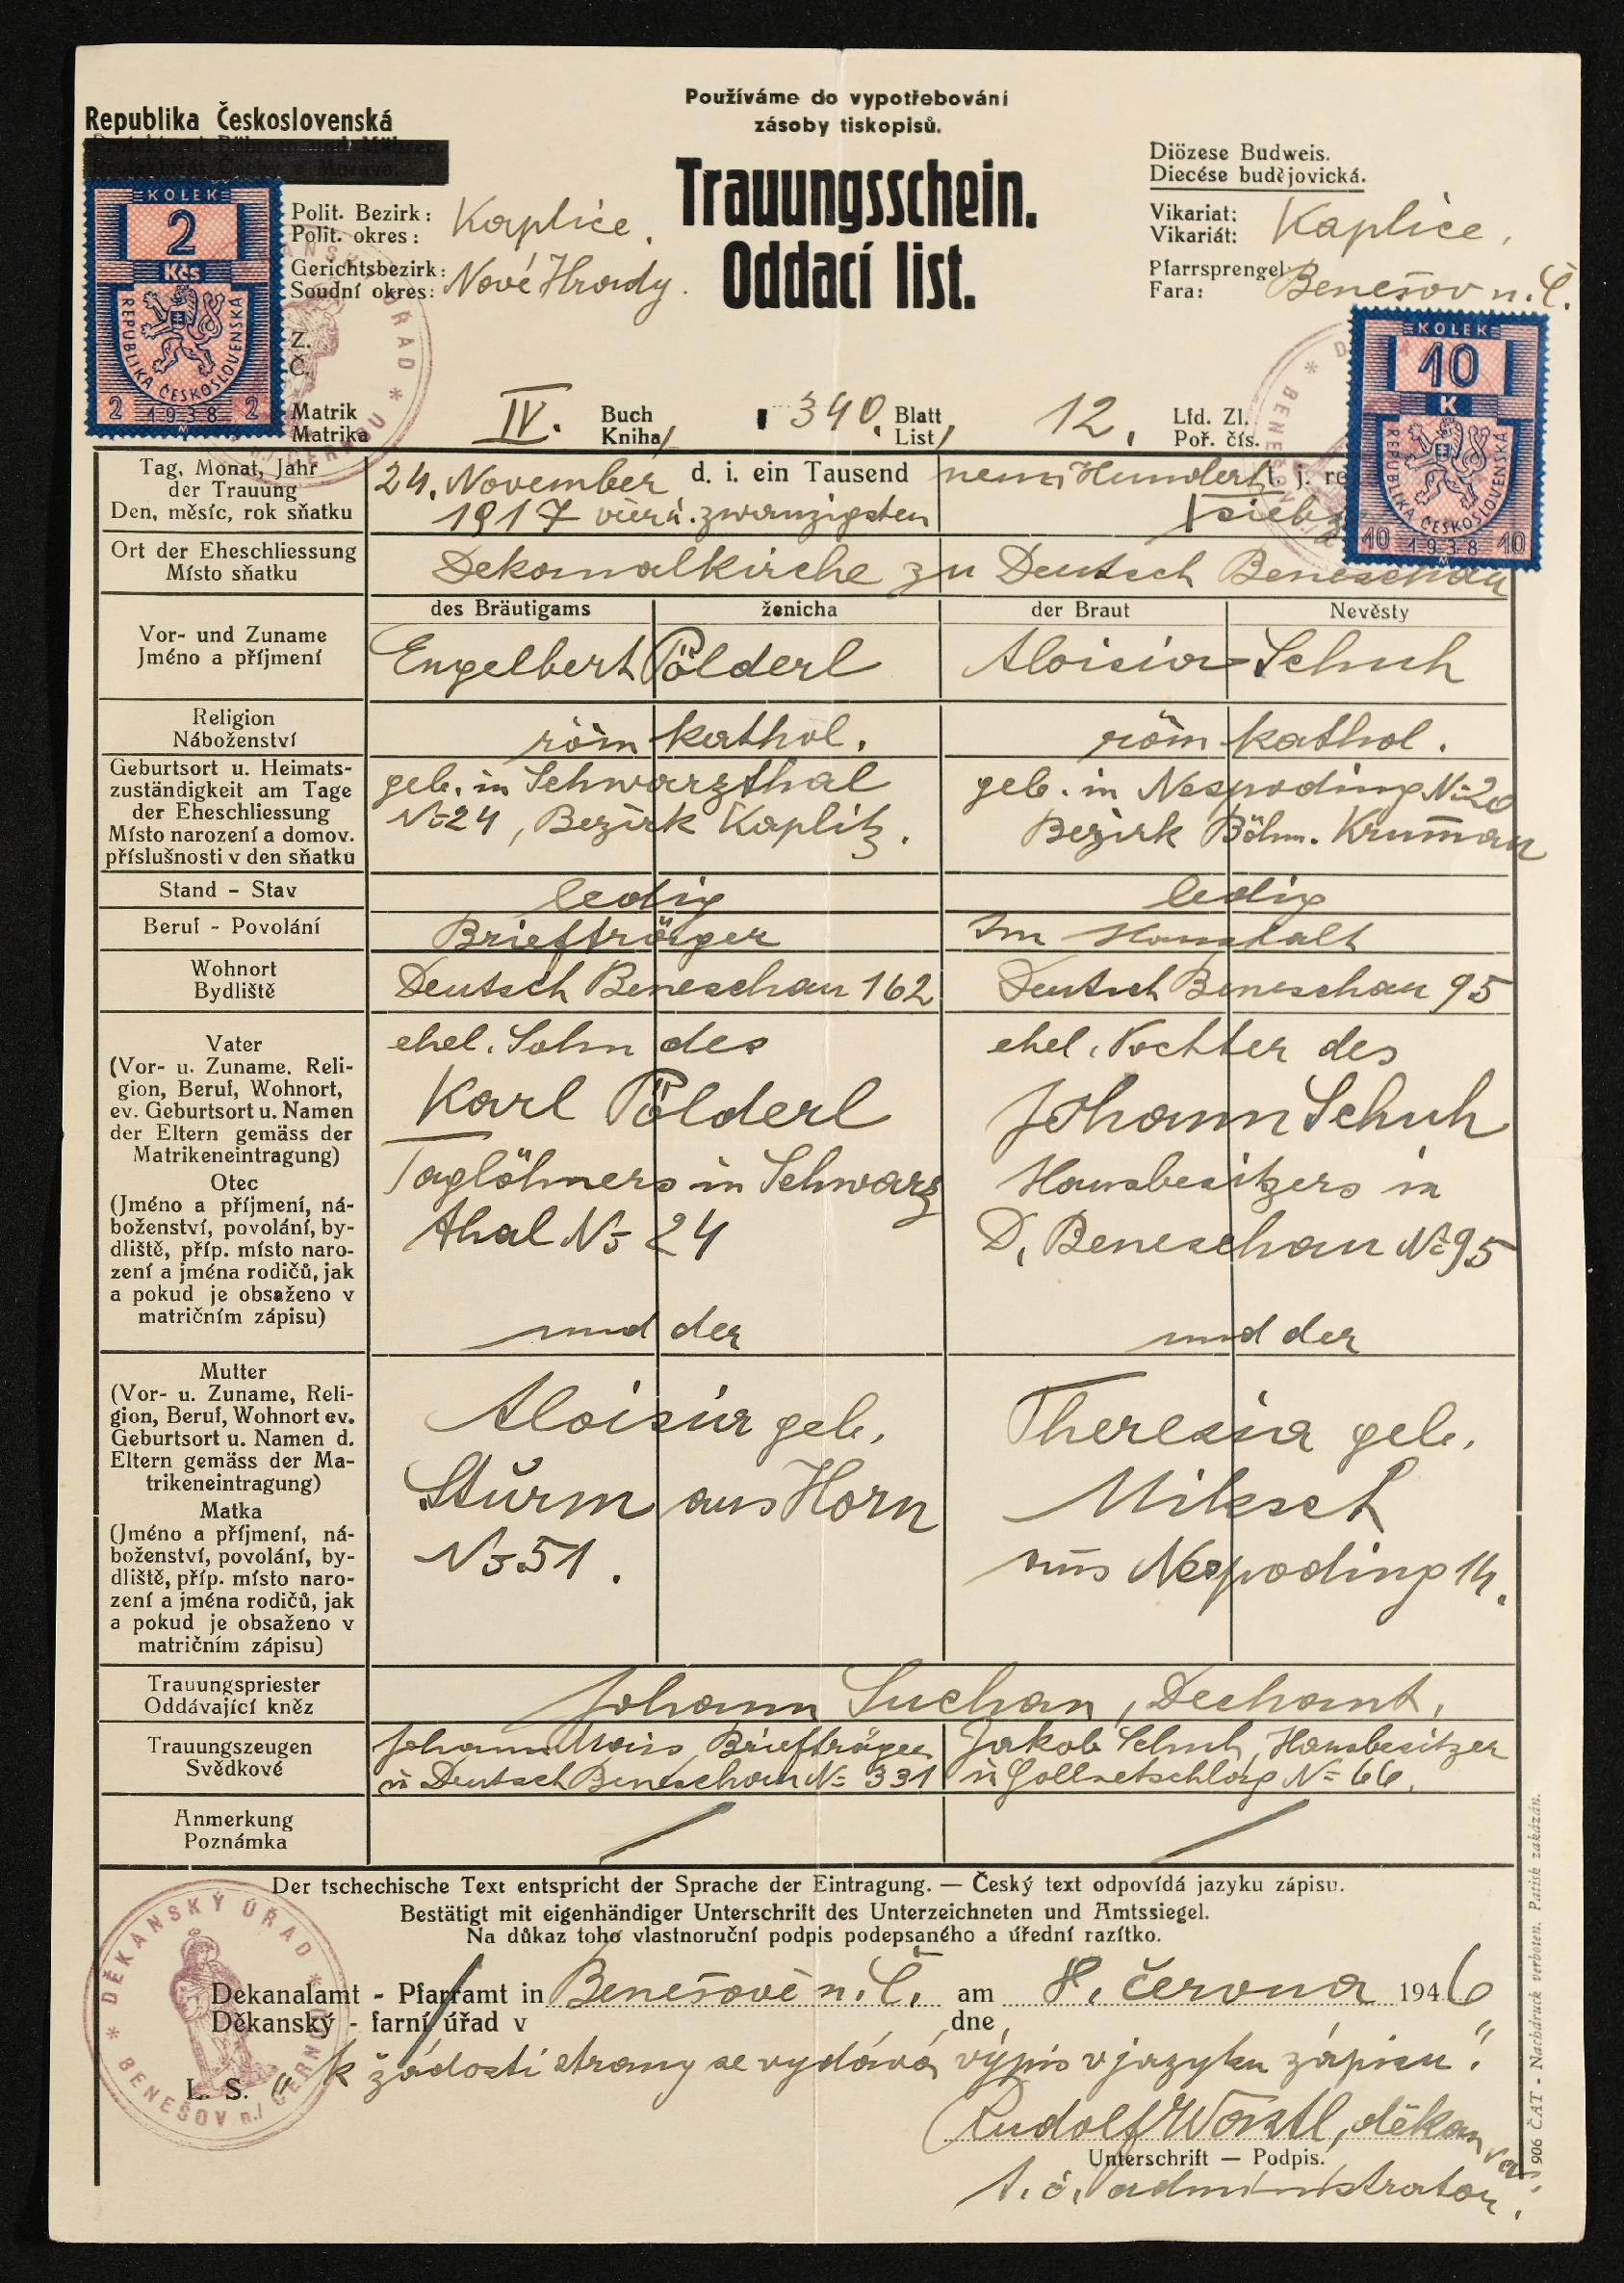 Používáme do vypotřebování
zásoby tiskopisů.
Republika Československá
Trauungsschein.
Oddací list.
Diözese Budweis.
Diecése budějovická.
KOLEK
2
Kčs
REPUBLIKA ČESKOSLOVENSKÁ
2 1938 2
Polit. Bezirk:
Polit. okres:
Kaplice.
Gerichtsbezirk:
Soudní okres:
Nové Hrady.
Vikariat:
Vikariát:
Kaplice,
Pfarrsprengel
Fara:
Benešov n. Č.
KOLEK
10
K
REPUBLIKA ČESKOSLOVENSKÁ
10 1938 10
Z.
Č.
Matrik
Matrika
IV.
Buch
Kniha
340.
Blatt
List
12.
Lfd. Zl.
Poř. čís.
Tag, Monat, Jahr
der Trauung
Den, měsíc, rok sňatku
24. November d. i. ein Tausend neun Hundert t. j. 
1917 vier u. zwanzigsten
Ort der Eheschliessung
Místo sňatku
Dekanalkirche zu Deutsch Beneschau
des Bräutigams ženicha der Braut Nevěsty
Vor- und Zuname
Jméno a příjmení
Engelbert Pölderl Aloisia Schuh
Religion
Náboženství
röm kathol. röm kathol.
Geburtsort u. Heimats-
zuständigkeit am Tage
der Eheschliessung
Místo narození a domov.
příslušnosti v den sňatku
geb. in Schwarzthal
No 24, Bezirk Kaplitz.
geb. in Nespoding No 20
Bezirk Böhm. Krumau
Stand - Stav
ledig ledig
Beruf - Povolání
Briefträger Im Haushalt
Wohnort
Bydliště
Deutsch Beneschau 162 Deutsch Beneschau 95
Vater
(Vor- u. Zuname. Reli-
gion, Beruf, Wohnort,
ev. Geburtsort u. Namen
der Eltern gemäss der
Matrikeneintragung)
Otec
(Jméno a příjmení, ná-
boženství, povolání, by-
dliště, příp. místo naro-
zení a jména rodičů, jak
a pokud je obsaženo v
matričním zápisu)
ehel. Sohn des
Karl Pölderl
Taglöhners in Schwarz
thal No 24
und der
ehel. Tochter des
Johann Schuh
Hausbesitzers in
D. Beneschau No 95
und der
Mutter
(Vor- u. Zuname, Reli-
gion, Beruf, Wohnort ev.
Geburtsort u. Namen d.
Eltern gemäss der Ma-
trikeneintragung)
Matka
(Jméno a příjmení, ná-
boženství, povolání, by-
dliště, příp. místo naro-
zení a jména rodičů, jak
a pokud je obsaženo v
matričním zápisu)
Aloisia geb.
Sturm aus Horn
No 51.
Theresia geb.
Miksch
aus Nespoding 14.
Trauungspriester
Oddávající kněz
Johann Suchan, Dechant.
Trauungszeugen
Svědkové
Johann Weiss, Briefträger
in Deutsch Beneschau No 331
Jakob Schuh, Hausbesitzer
in Gollnetschlag No 66.
Anmerkung
Poznámka
Der tschechische Text entspricht der Sprache der Eintragung. — Český text odpovídá jazyku zápisu.
Bestätigt mit eigenhändiger Unterschrift des Unterzeichneten und Amtssiegel.
Na důkaz toho vlastnoruční podpis podepsaného a úřední razítko.
DĚKANSKÝ ÚŘAD * BENEŠOV n./ ČERNOU *
Dekanalamt - Pfarramt in Benešově n. Č. am 8. června 1946
Děkanský - farní úřad v dne
L. S. "k žádosti strany se vydává výpis v jazyku zápisu."
Rudolf Wörtl, děkan
Unterschrift — Podpis.
t. č. administrator.
906 ČAT - Nachdruck verboten. Patisk zakázán.